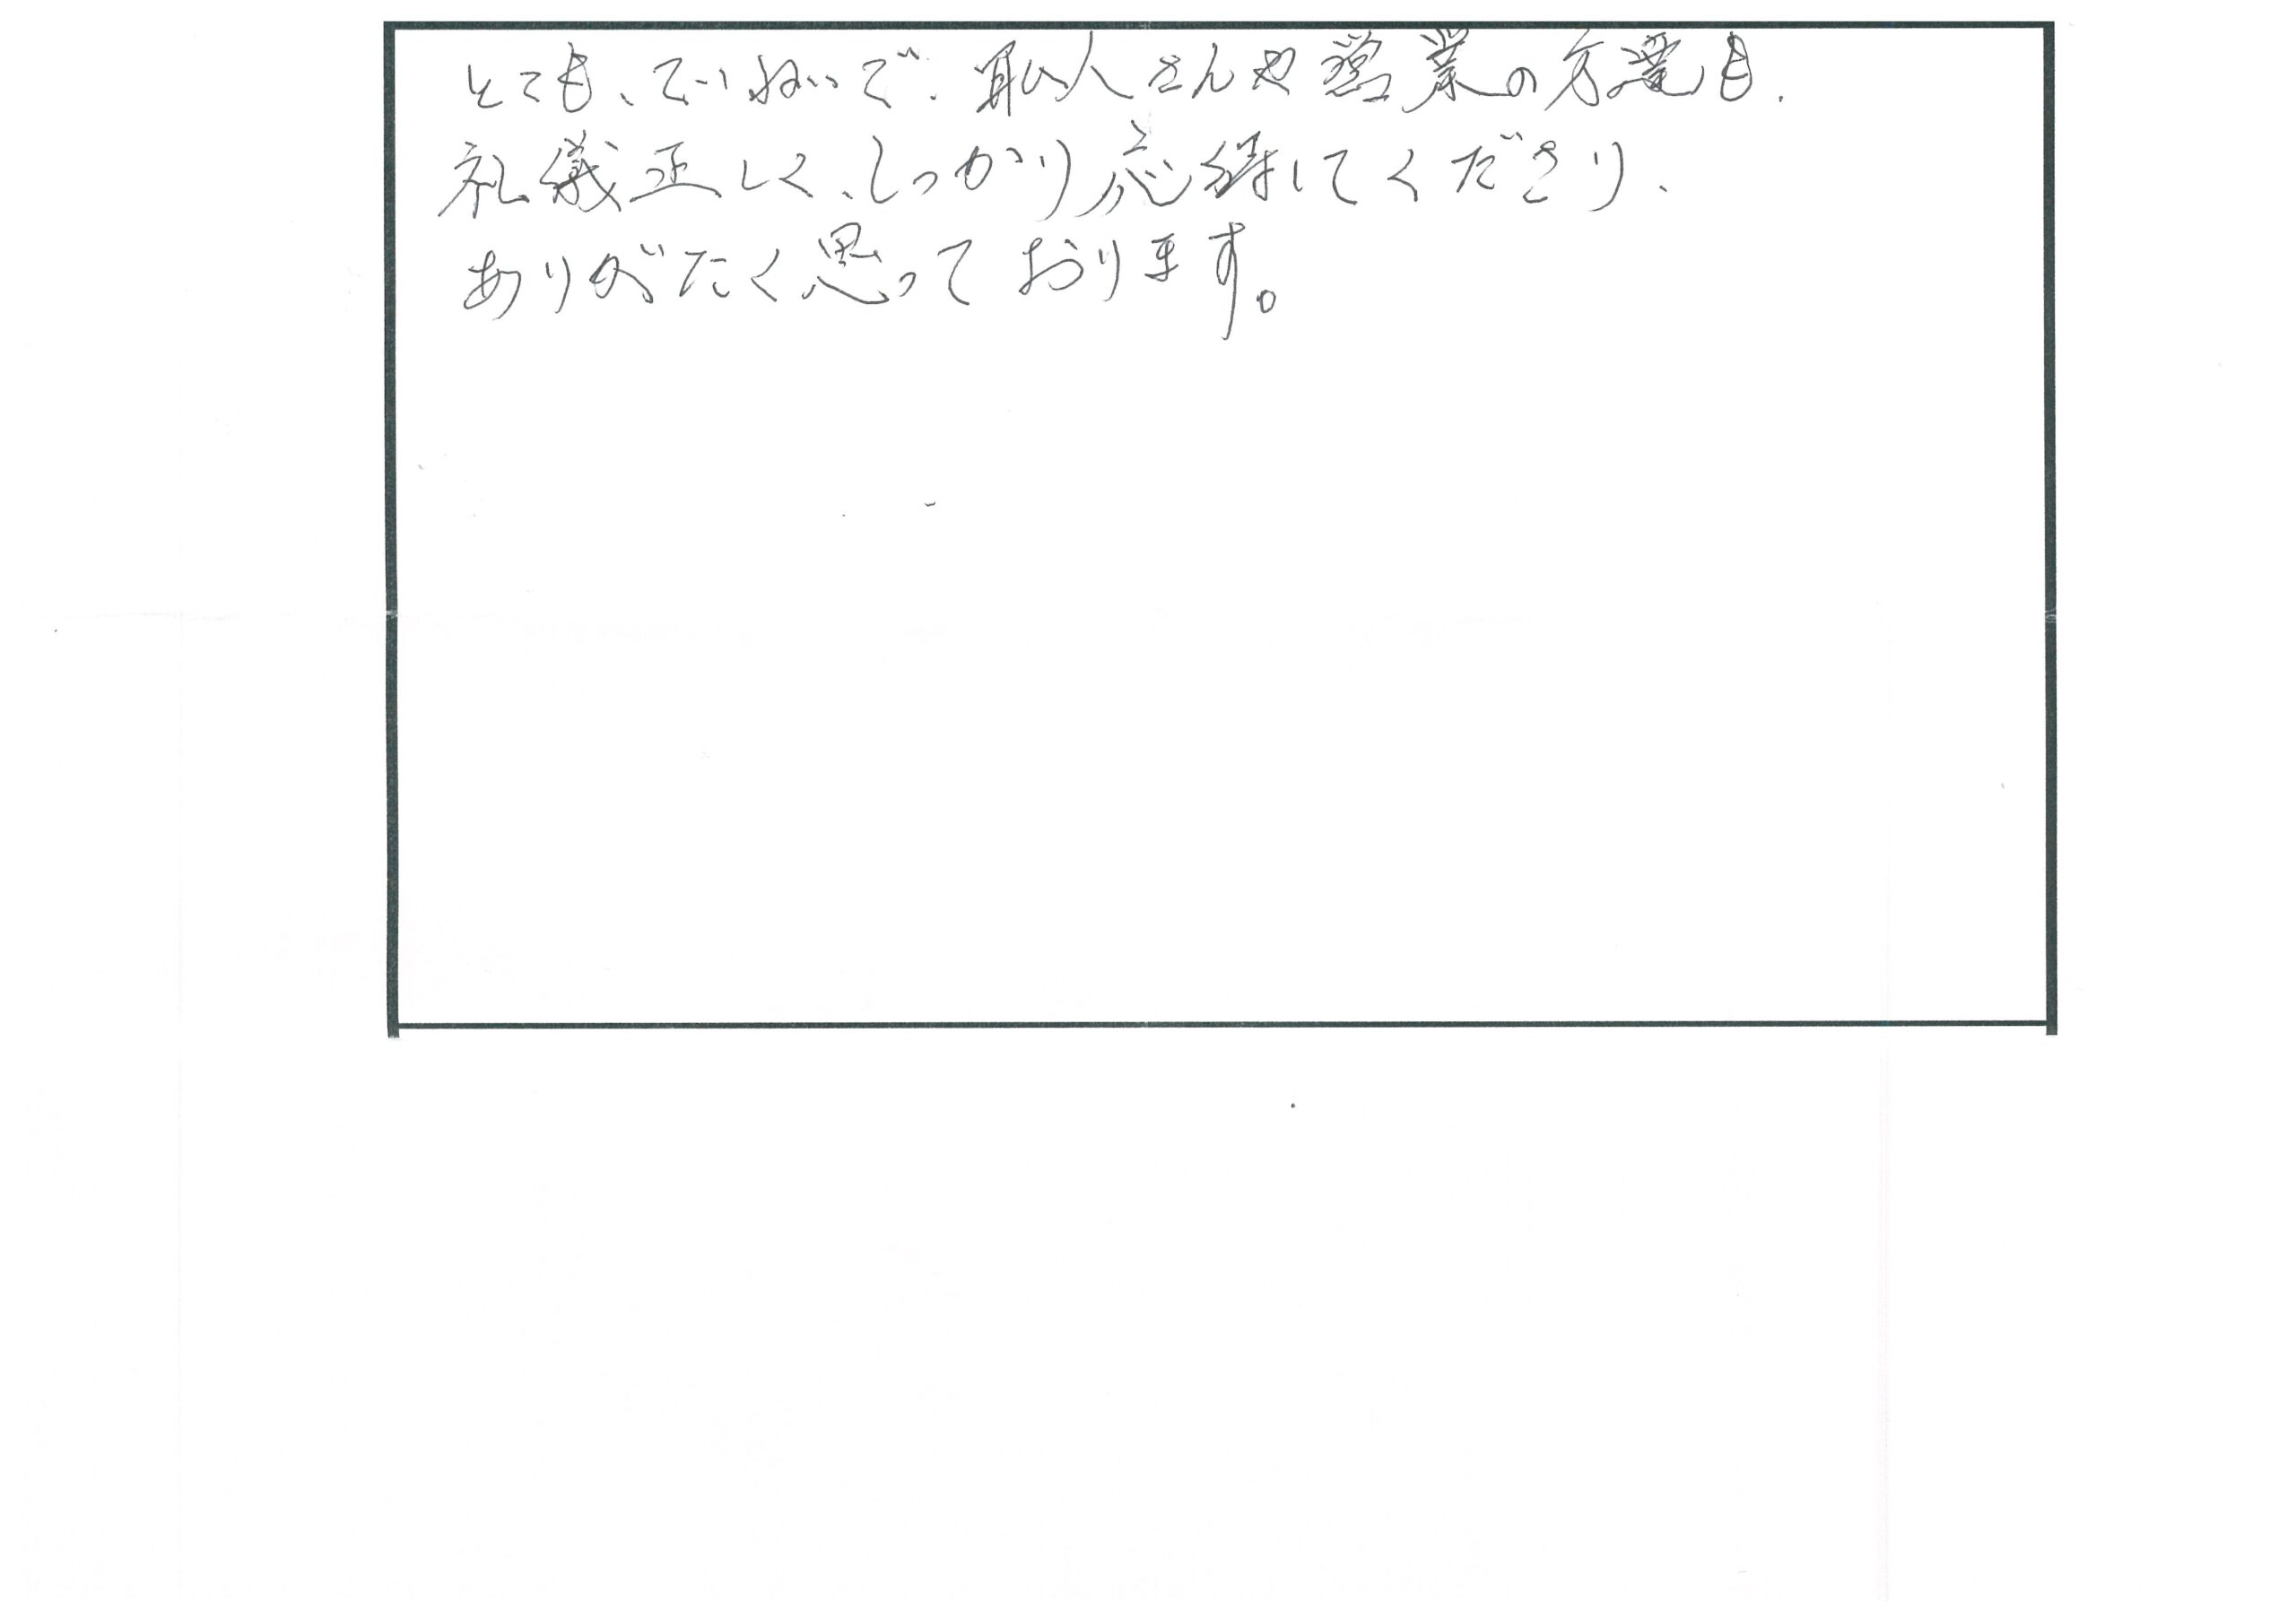 とても、ていねいで、職人さんや営業の方達も、
礼儀正しく、しっかり応待してくださり、
ありがたく思っております。